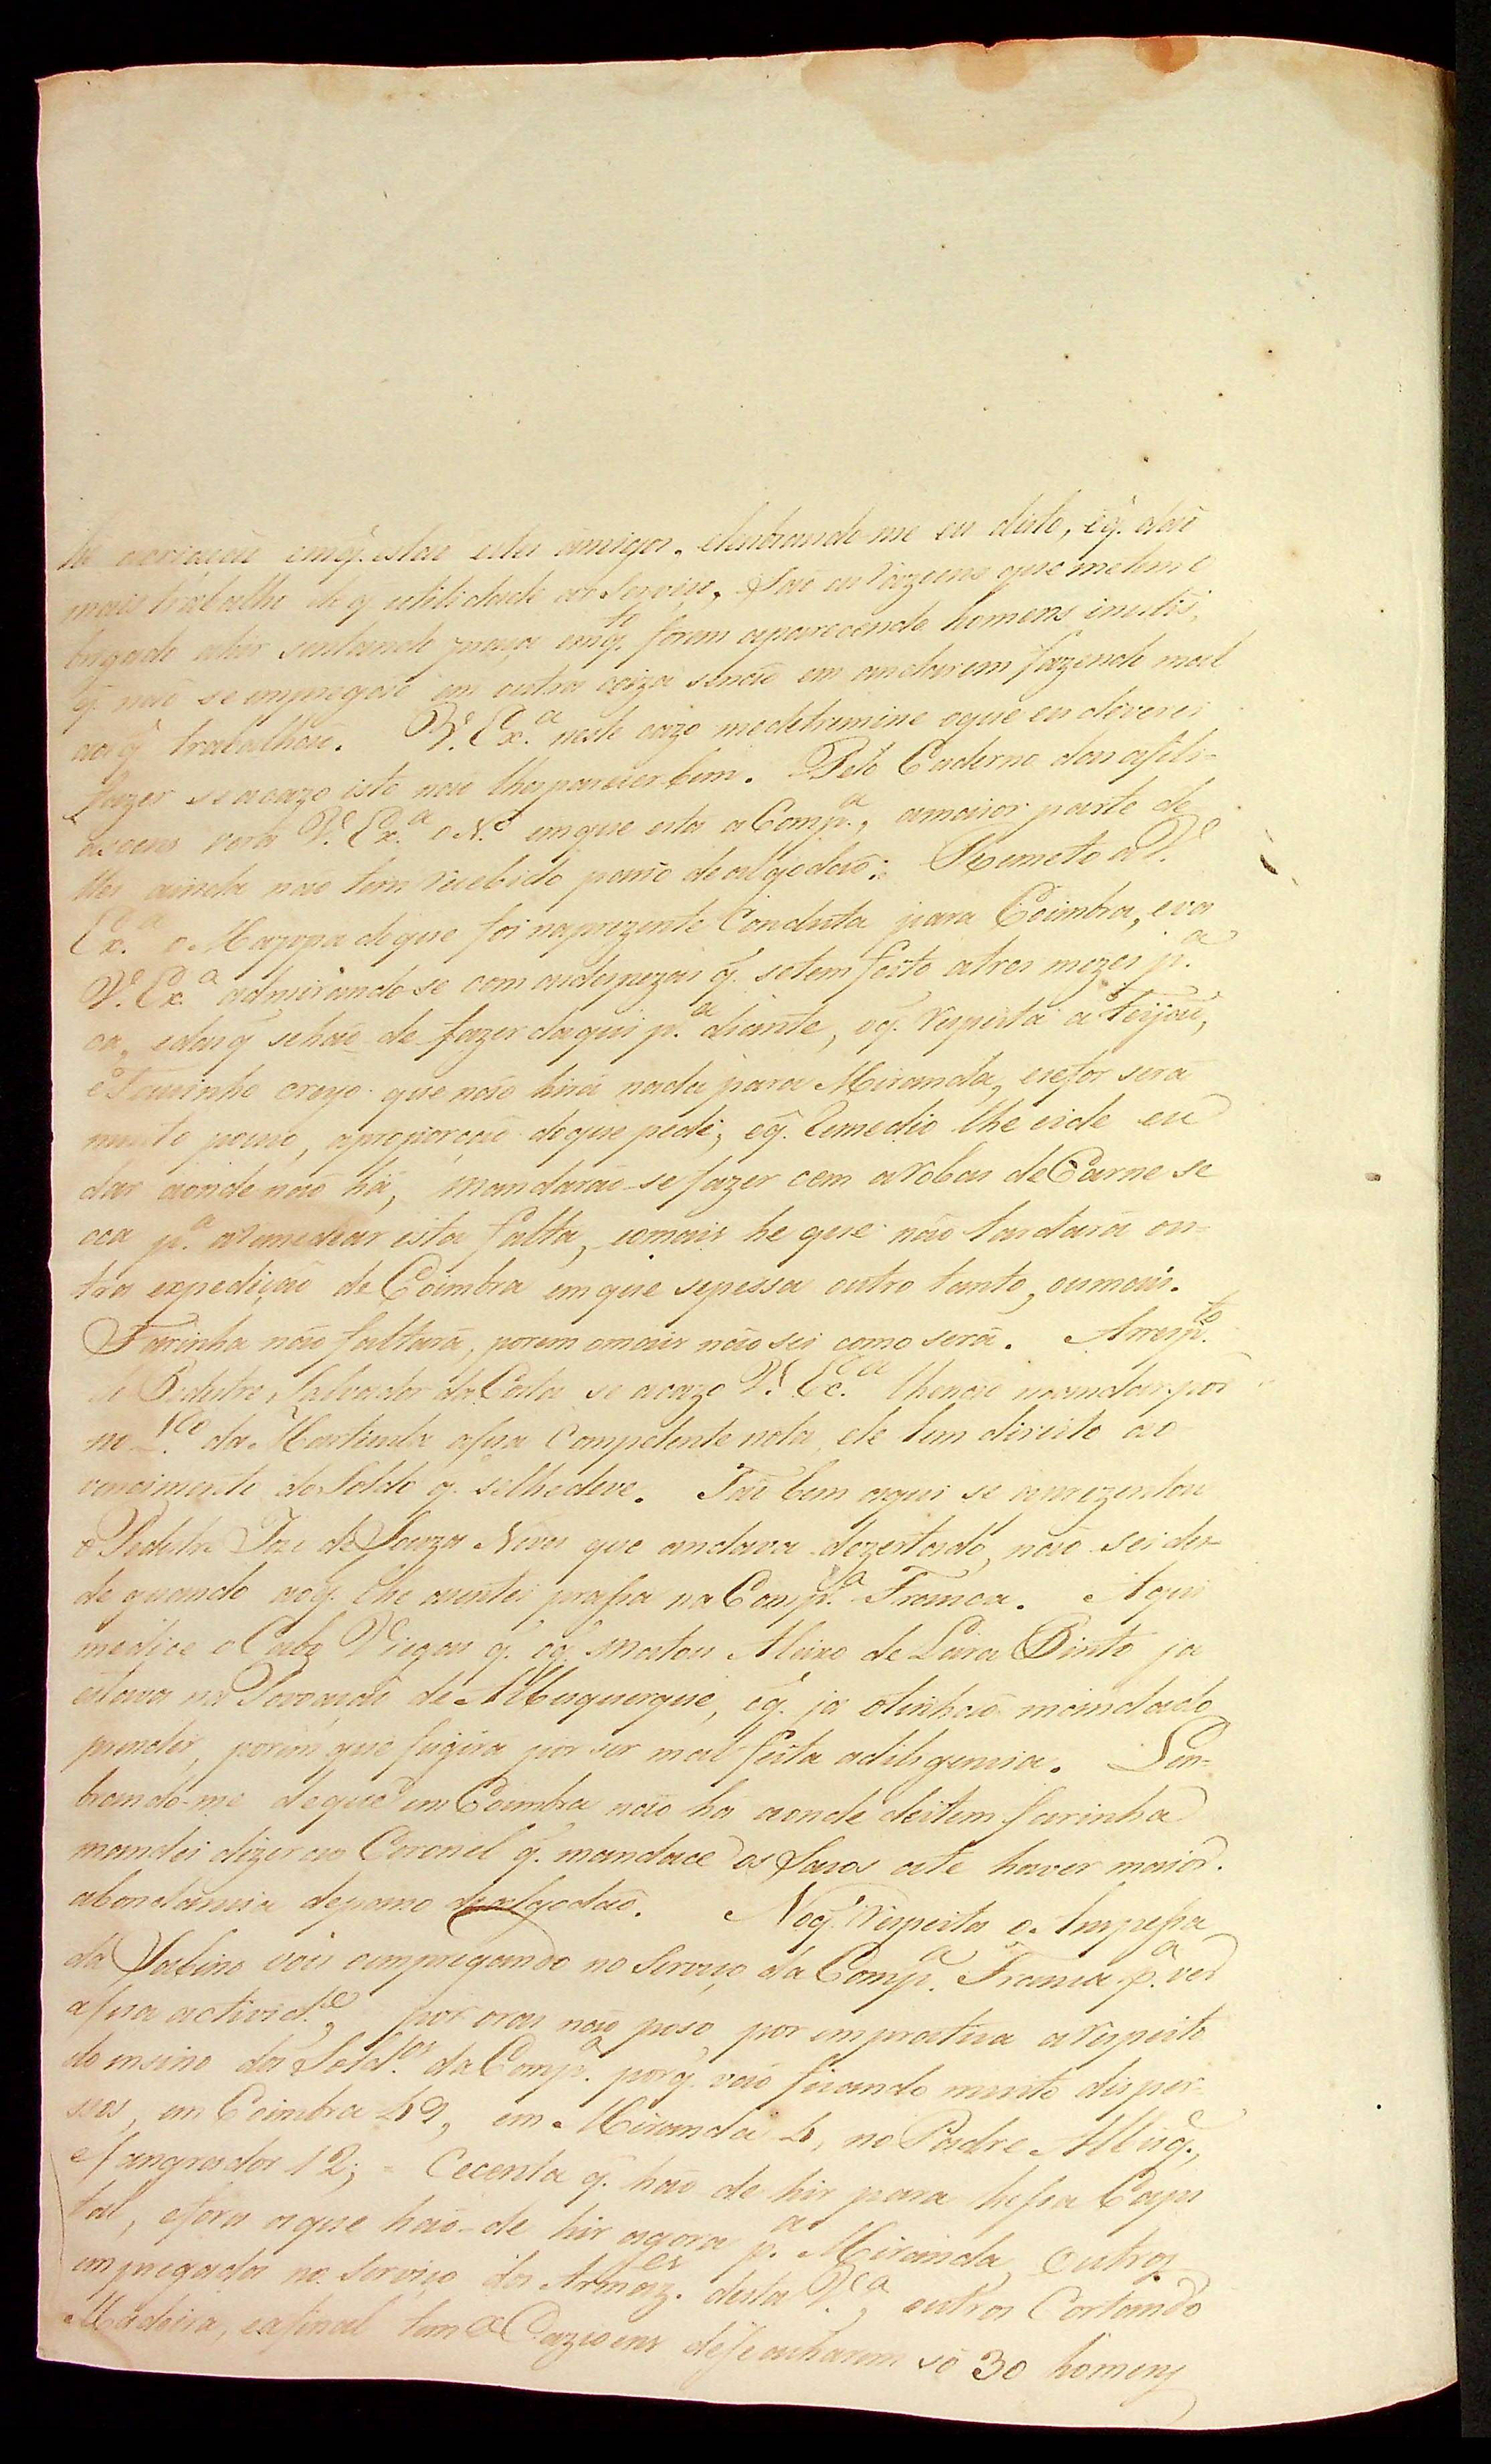 emq̃. estao estes amigos. elenbrando-me eu disto, eq̃. dáõ
mais trabalho do q̃ utilidade ao Serviço, Saõ as razoens que metem o
brigado a hir sentando praça emq.to forem aparecendo homens inuteis,
q̃ naõ se empregaõ em outra coiza senaõ em andarem fazendo mal
aoq̃ trabalhaõ. V. Ex.a neste cazo medetremine oque eu deverei
fazer se acazo isto naõ lhe parecer bem. Pelo Caderno das
verá V. Ex.a o N.o em que esta a Comp.a, amaior parte de
lles ainda naõ tem recebido pano de algodaõ: Remeto a V.
Ex.a o Mappa do que foi na prezente Conduta para Coimbra, e va
V. Ex.a admirando se com as despezas q̃. se tem feito a tres mezes p.a
ca, e das q̃ se haõ de fazer daqui p.a diante, oq̃. respeita a Feijaõ,
e Toucinho creyo que naõ hirá nada para Miranda, e se for será
muito pouco, aproporçaõ do que pedi, eq̃. Remedio lhe eide eu
dar aonde naõ há, mandaraõ-se fazer cem arobas de Carne se
cca p.a aremediar esta falta, eomais he que naõ tardará ou-
tra expediçaõ de Coimbra em que sepessa outro tanto, oumais.
Farinha naõ faltará, porem omais naõ sei como será. Arresp.to
do Pedestre Salvador da Costa se acazo V. Ex.a lhe naõ mandar por
no L.co da Marticula asua Competente nota, ele tem direito ao
vencimento do Soldo q̃. selhedeve. Taõ bem aqui se aprezentou
o Pedestre Joze de Souza Neves que andava dezertado, naõ sei des-
de quando aoq̃. lhe asentei prassa na Comp.a Franca. Aqui
medice o Cabo Viegas q̃. oq̃. matou Aleixo de Lara Pinto ja
estava na Povoaçaõ de Albuquerque, eq̃. ja otinhaõ mandado
prender, porem que fugira por ser mal feita adiligencia. Len-
brando-me deque em Coimbra naõ ha aonde deitem farinha
mandei dizer ao Coronel q̃. mandace os sacos ate haver maior.
abondancia depano de algodaõ. Noq̃. Respeita o Anspessa
da Sabino vou empregando no Serviço da Comp.a Franca p.a ver
asua activid.e, por oras naõ poso por em practica arespeito
do insino dos Sold.os da Comp.a porq̃. vaõ ficando muito disper-
sos, em Coimbra 49, em Miranda 4, no Padre Albuq.e,
e sangrador 12; = Cecenta q̃. haõ de hir para hessa Capi
tal, efora oque haõ-de hir agora p.a Miranda, Outros
empregados no Serviço dos Armaz.es desta V.ca, outros Cortando
Madeira, eafinal tem ocazioens dese acharem só 30 homens